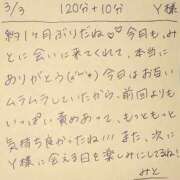 3/3 120分+10分 Y様
約1ヶ月ぶりだね♡♡今日も、み
とに会いに来てくれて、本当に
ありがとう(*´∀`*)今日はお互い
ムラムラしていたから、前回よりも
いっぱい責めあって、もっともっと
気持ち良かったね!!!また、次に
Y様に会える日を楽しみにしてるね!
みと